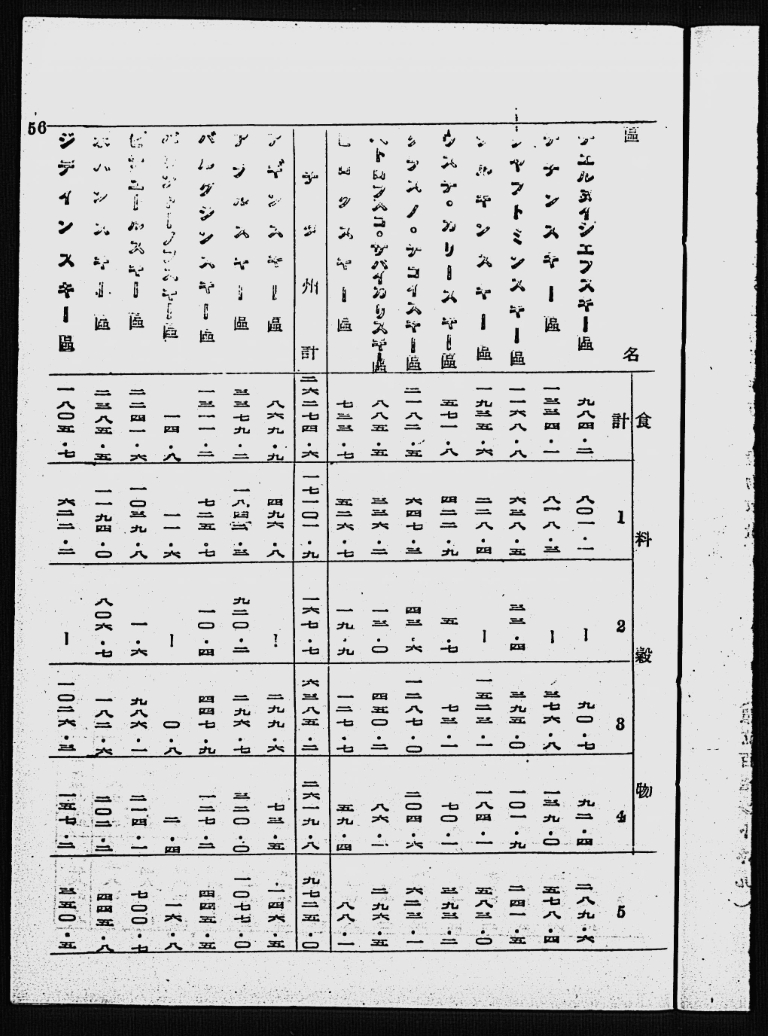 56
區名 計 1 2 3 4 5
食料穀物
エルヌイシエフスキー區 九八四・二 八〇一・一 ー 九〇・七 九二・四 二八九・六
チチンスキー區 一三三四・一 八一八・三 ー 三七六・八 一三九・〇 五七八・四
シヤフトミンスキー區 一一六八・八 六三八・五 三三・四 三九五・〇 一〇一・九 二四一・五
シルキンスキー區 一九三五・六 二二八・四 ー 一五二三・一 一八四・一 五八三・〇
ウスチ。カリースキー區 五七一・八 四二二・九 五・七 七三・一 七〇・一 三九三・二
クラスノ。チコイスキー區 二一八二・五 六四七・三 四三・六 一二八七・〇 二〇四・六 六二三・一
ペトロフスコ。ザバイカリスキー區 八八五・五 三三六・二 一三・〇 四五〇・二 八六・一 二九六・五
ヒロクスキー區 七三三・七 五二六・七 一九・九 一二七・七 五九・四 八八・一
チタ州計 二六二七四・六 一七一〇一・九 一六七・七 六三八五・二 二六一九・八 九七二五・〇
アギンスキー區 八六九・九 四九六・八 ー 二九九・六 七三・五 一四六・五
アラルスキー區 三三七九・二 一八四二・三 九二〇・二 二九六・七 三二〇・〇 一〇七七・〇
バルグジンスキー區 一三一一・二 七二五・七 一〇・四 四四七・九 一二七・二 四四五・五
バウントーフスキー區 一四・八 一一・六 ー 〇・八 二・四 一六・八
ビチユールスキー區 二二四一・六 一〇三九・八 一・六 九八六・一 二一四・一 七〇〇・七
ボハンスキー區 二三八五・五 一一九四・〇 八〇六・七 一八二・六 二〇二・二 四四五・八
ジデインスキー區 一八〇五・七 六二二・二 ー 一〇二六・三 一五七・二 三五〇・五